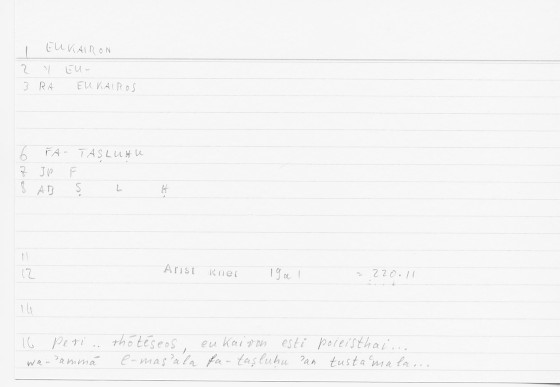 1 EUKAIRON
2 4 EU-
3 RA EUKAIROS
6 FA-TAṢLUḤU
7 IP F
8 AD Ṣ L Ḥ
11
12 Arist 19a1 = 220.11
14
16 Peri.. rhōtēseōs, eukairon esti poieisthai...
wa-ʾammā l-masʾala fa-taṣluḥu ʾan tustaʿmala...